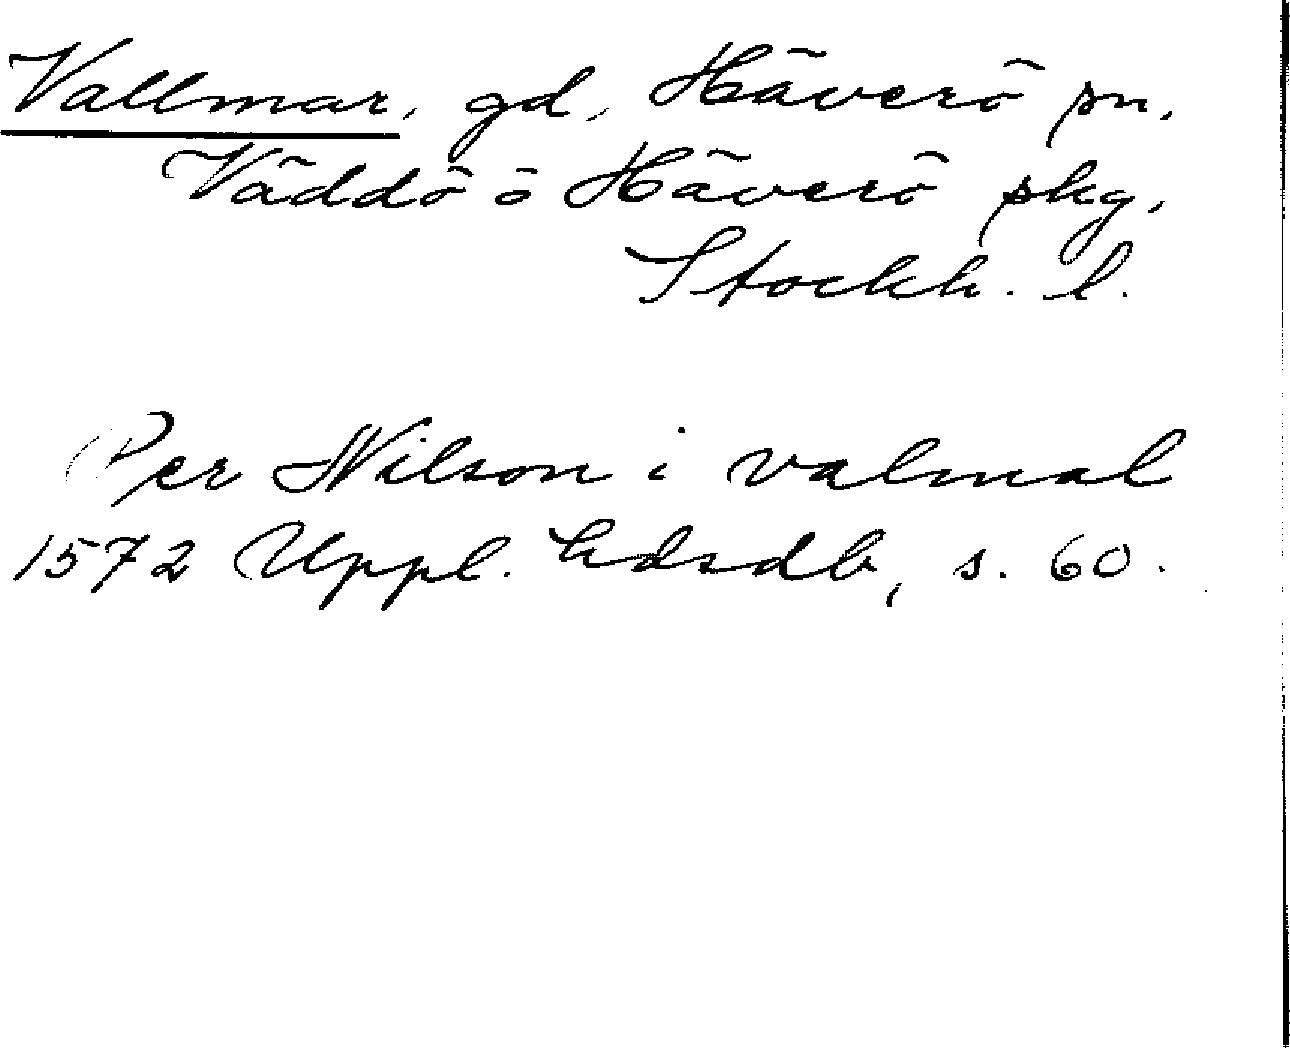 Vallmar, gd, Häverö sn,
Väddö ö Häverö skg,
Stockh. l.
Per Nilson i valmal
1572 Uppl. hdsdb, s. 60.